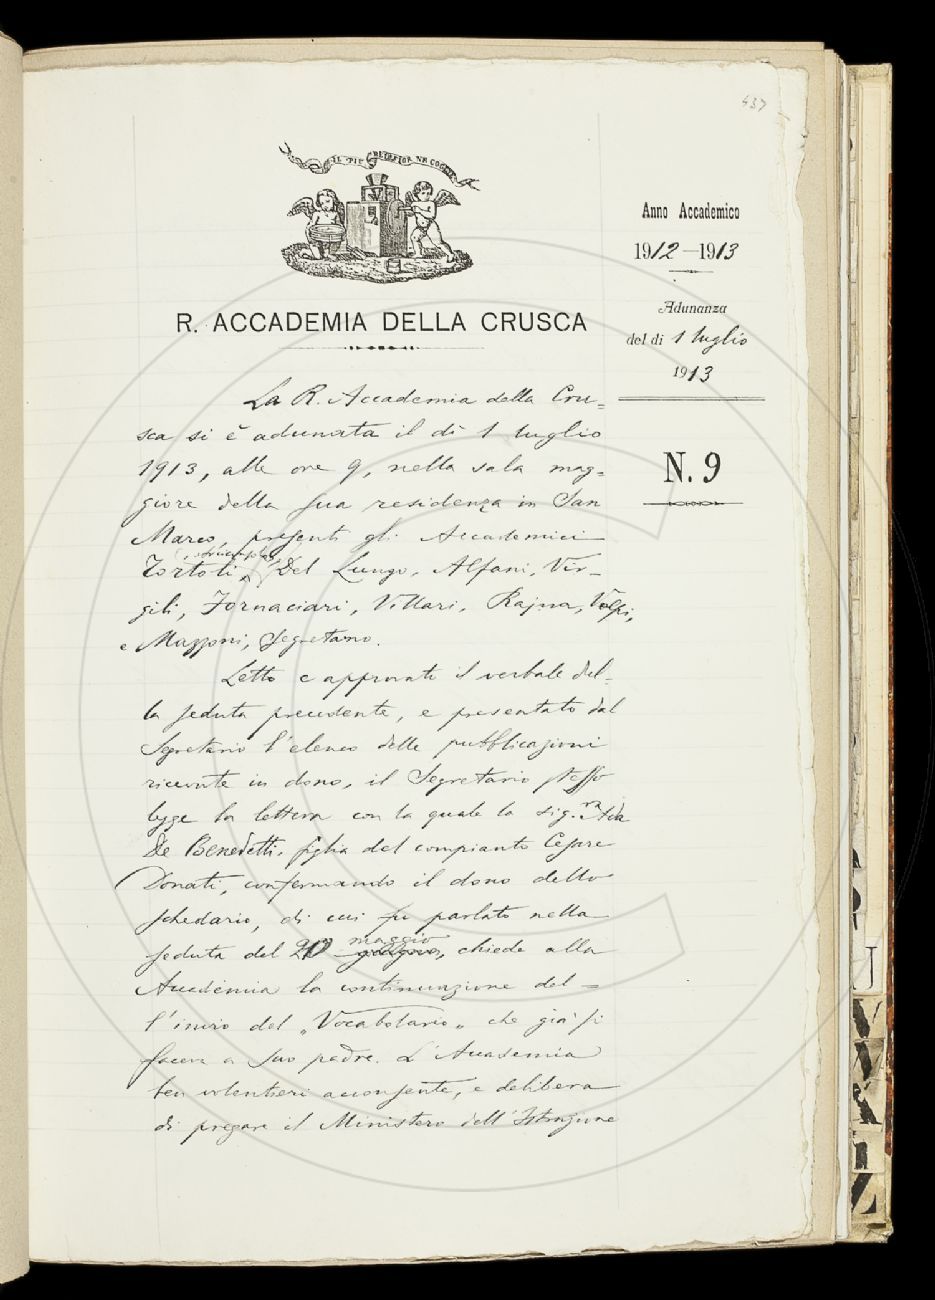 437
IL PIÙ BEL FIOR NE COGLIE
Anno Accademico
1912-1913
Adunanza
del dì 1 luglio
1913
N. 9
R. ACCADEMIA DELLA CRUSCA
La R. Accademia della Cru=
sca si è adunata il dì 1 luglio
1913, alle ore 9, nella sala mag=
giore della sua residenza in San
Marco, presenti gli Accademici
Tortoli, Del Lungo, Alfani, Vir-
gili, Fornaciari, Villari, Rajna, Volpi,
e Mazzoni, Segretario.
Letto e approvato il verbale del-
la seduta precedente, e presentato dal
Segretario l'elenco delle pubblicazioni
ricevute in dono, il Segretario stesso
legge la lettera con la quale la sig.ra Ada
De Benedetti, figlia del compianto Cesare
Donati, confermando il dono dello
schedario, di cui fu parlato nella
seduta del 20 maggio, chiede alla
Accademia la continuazione del=
l'invio del „Vocabolario„ che già si
faceva a suo padre. L'Accademia
ben volentieri acconsente, e delibera
di pregare il Ministero dell'Istruzione